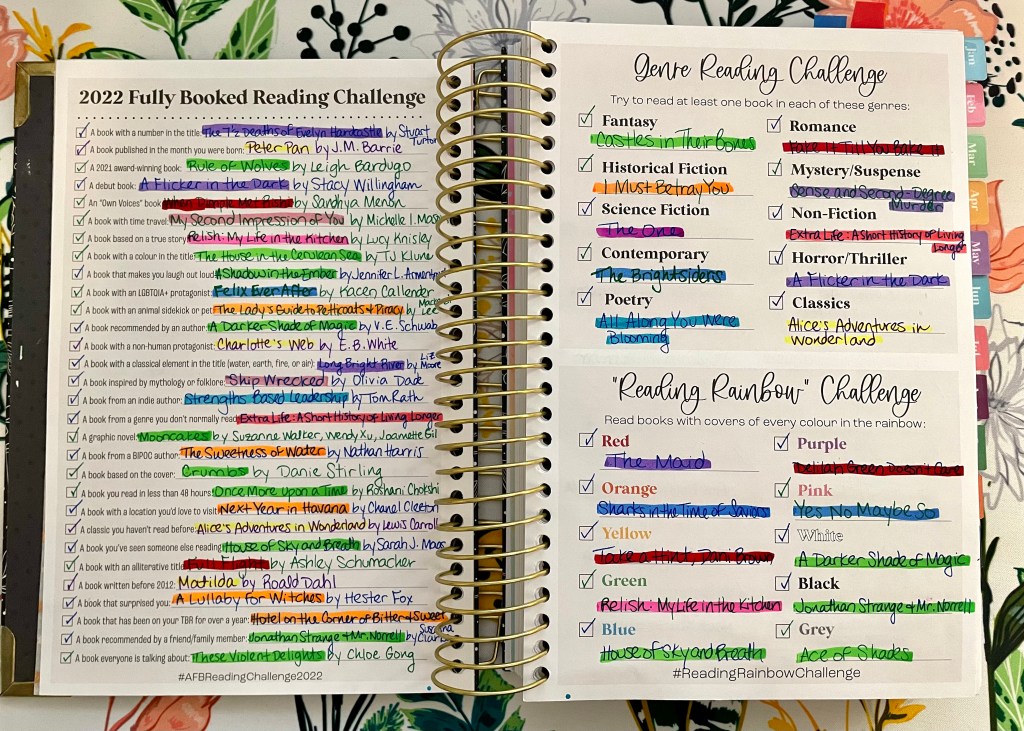 2022 Fully Booked Reading Challenge
A book with a number in the title: The 7½ Deaths of Evelyn Hardcastle by Stuart Turton
A book published in the month you were born: Peter Pan by J.M. Barrie
A 2021 award-winning book: Rule of Wolves by Leigh Bardugo
A debut book: A Flicker in the Dark by Stacy Willingham
An "Own Voices" book: When Dimple Met Rishi by Sandhya Menon
A book with time travel: My Second Impression of You by Michelle I. Mason
A book based on a true story: Relish: My Life in the Kitchen by Lucy Knisley
A book with a colour in the title: The House in the Cerulean Sea by TJ Klune
A book that makes you laugh out loud: A Shadow in the Ember by Jennifer L. Armentrout
A book with an LGBTQIA+ protagonist: Felix Ever After by Kacen Callender
A book with an animal sidekick or pet: The Lady's Guide to Petticoats & Piracy by Mackenzi Lee
A book recommended by an author: A Darker Shade of Magic by V.E. Schwab
A book with a non-human protagonist: Charlotte's Web by E.B. White
A book with a classical element in the title (water, earth, fire, or air): Long Bright River by Liz Moore
A book inspired by mythology or folklore: Ship Wrecked by Olivia Dade
A book from an indie author: Strengths Based Leadership by Tom Rath
A book from a genre you don't normally read: Extra Life: A Short History of Living Longer
A graphic novel: Mooncakes by Suzanne Walker, Wendy Xu, Joamette Gil
A book from a BIPOC author: The Sweetness of Water by Nathan Harris
A book based on the cover: Crumbs by Danie Stirling
A book you read in less than 48 hours: Once More Upon a Time by Roshani Chokshi
A book with a location you'd love to visit: Next Year in Havana by Chanel Cleeton
A classic you haven't read before: Alice's Adventures in Wonderland by Lewis Carroll
A book you've seen someone else reading: House of Sky and Breath by Sarah J. Maas
A book with an alliterative title: Full Flight by Ashley Schumacher
A book written before 2012: Matilda by Roald Dahl
A book that surprised you: A Lullaby for Witches by Hester Fox
A book that has been on your TBR for over a year: Hotel on the Corner of Bitter & Sweet
A book recommended by a friend/family member: Jonathan Strange & Mr. Norrell by Susanna Clarke
A book everyone is talking about: These Violent Delights by Chloe Gong
#AFBReadingChallenge2022
Genre Reading Challenge
Try to read at least one book in each of these genres:
Fantasy
Castles in Their Bones
Historical Fiction
I Must Betray You
Science Fiction
The One
Contemporary
The Brightsiders
Poetry
All Along You Were
Blooming
Romance
Fake It Till You Bake It
Mystery/Suspense
Sense and Second-Degree
Murder
Non-Fiction
Extra Life: A Short History of Living
Longer
Horror/Thriller
A Flicker in the Dark
Classics
Alice's Adventures in
Wonderland
"Reading Rainbow" Challenge
Read books with covers of every colour in the rainbow:
Red
The Maid
Orange
Sharks in the Time of Saviors
Yellow
Take a Hint, Dani Brown
Green
Relish: My Life in the Kitchen
Blue
House of Sky and Breath
Purple
Delilah Green Doesn't Care
Pink
Yes No Maybe So
White
A Darker Shade of Magic
Black
Jonathan Strange & Mr. Norrell
Grey
Ace of Shades
#ReadingRainbowChallenge
Jan
Feb
Mar
Apr
May
Jun
Jul